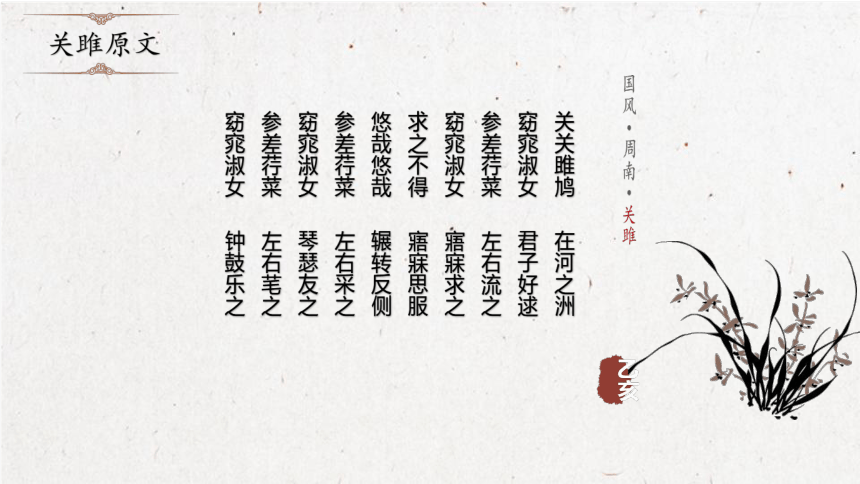 关雎原文
国风·周南·关雎
关关雎鸠 在河之洲
窈窕淑女 君子好逑
参差荇菜 左右流之
窈窕淑女 寤寐求之
求之不得 寤寐思服
悠哉悠哉 辗转反侧
参差荇菜 左右采之
窈窕淑女 琴瑟友之
参差荇菜 左右芼之
窈窕淑女 钟鼓乐之
乙亥